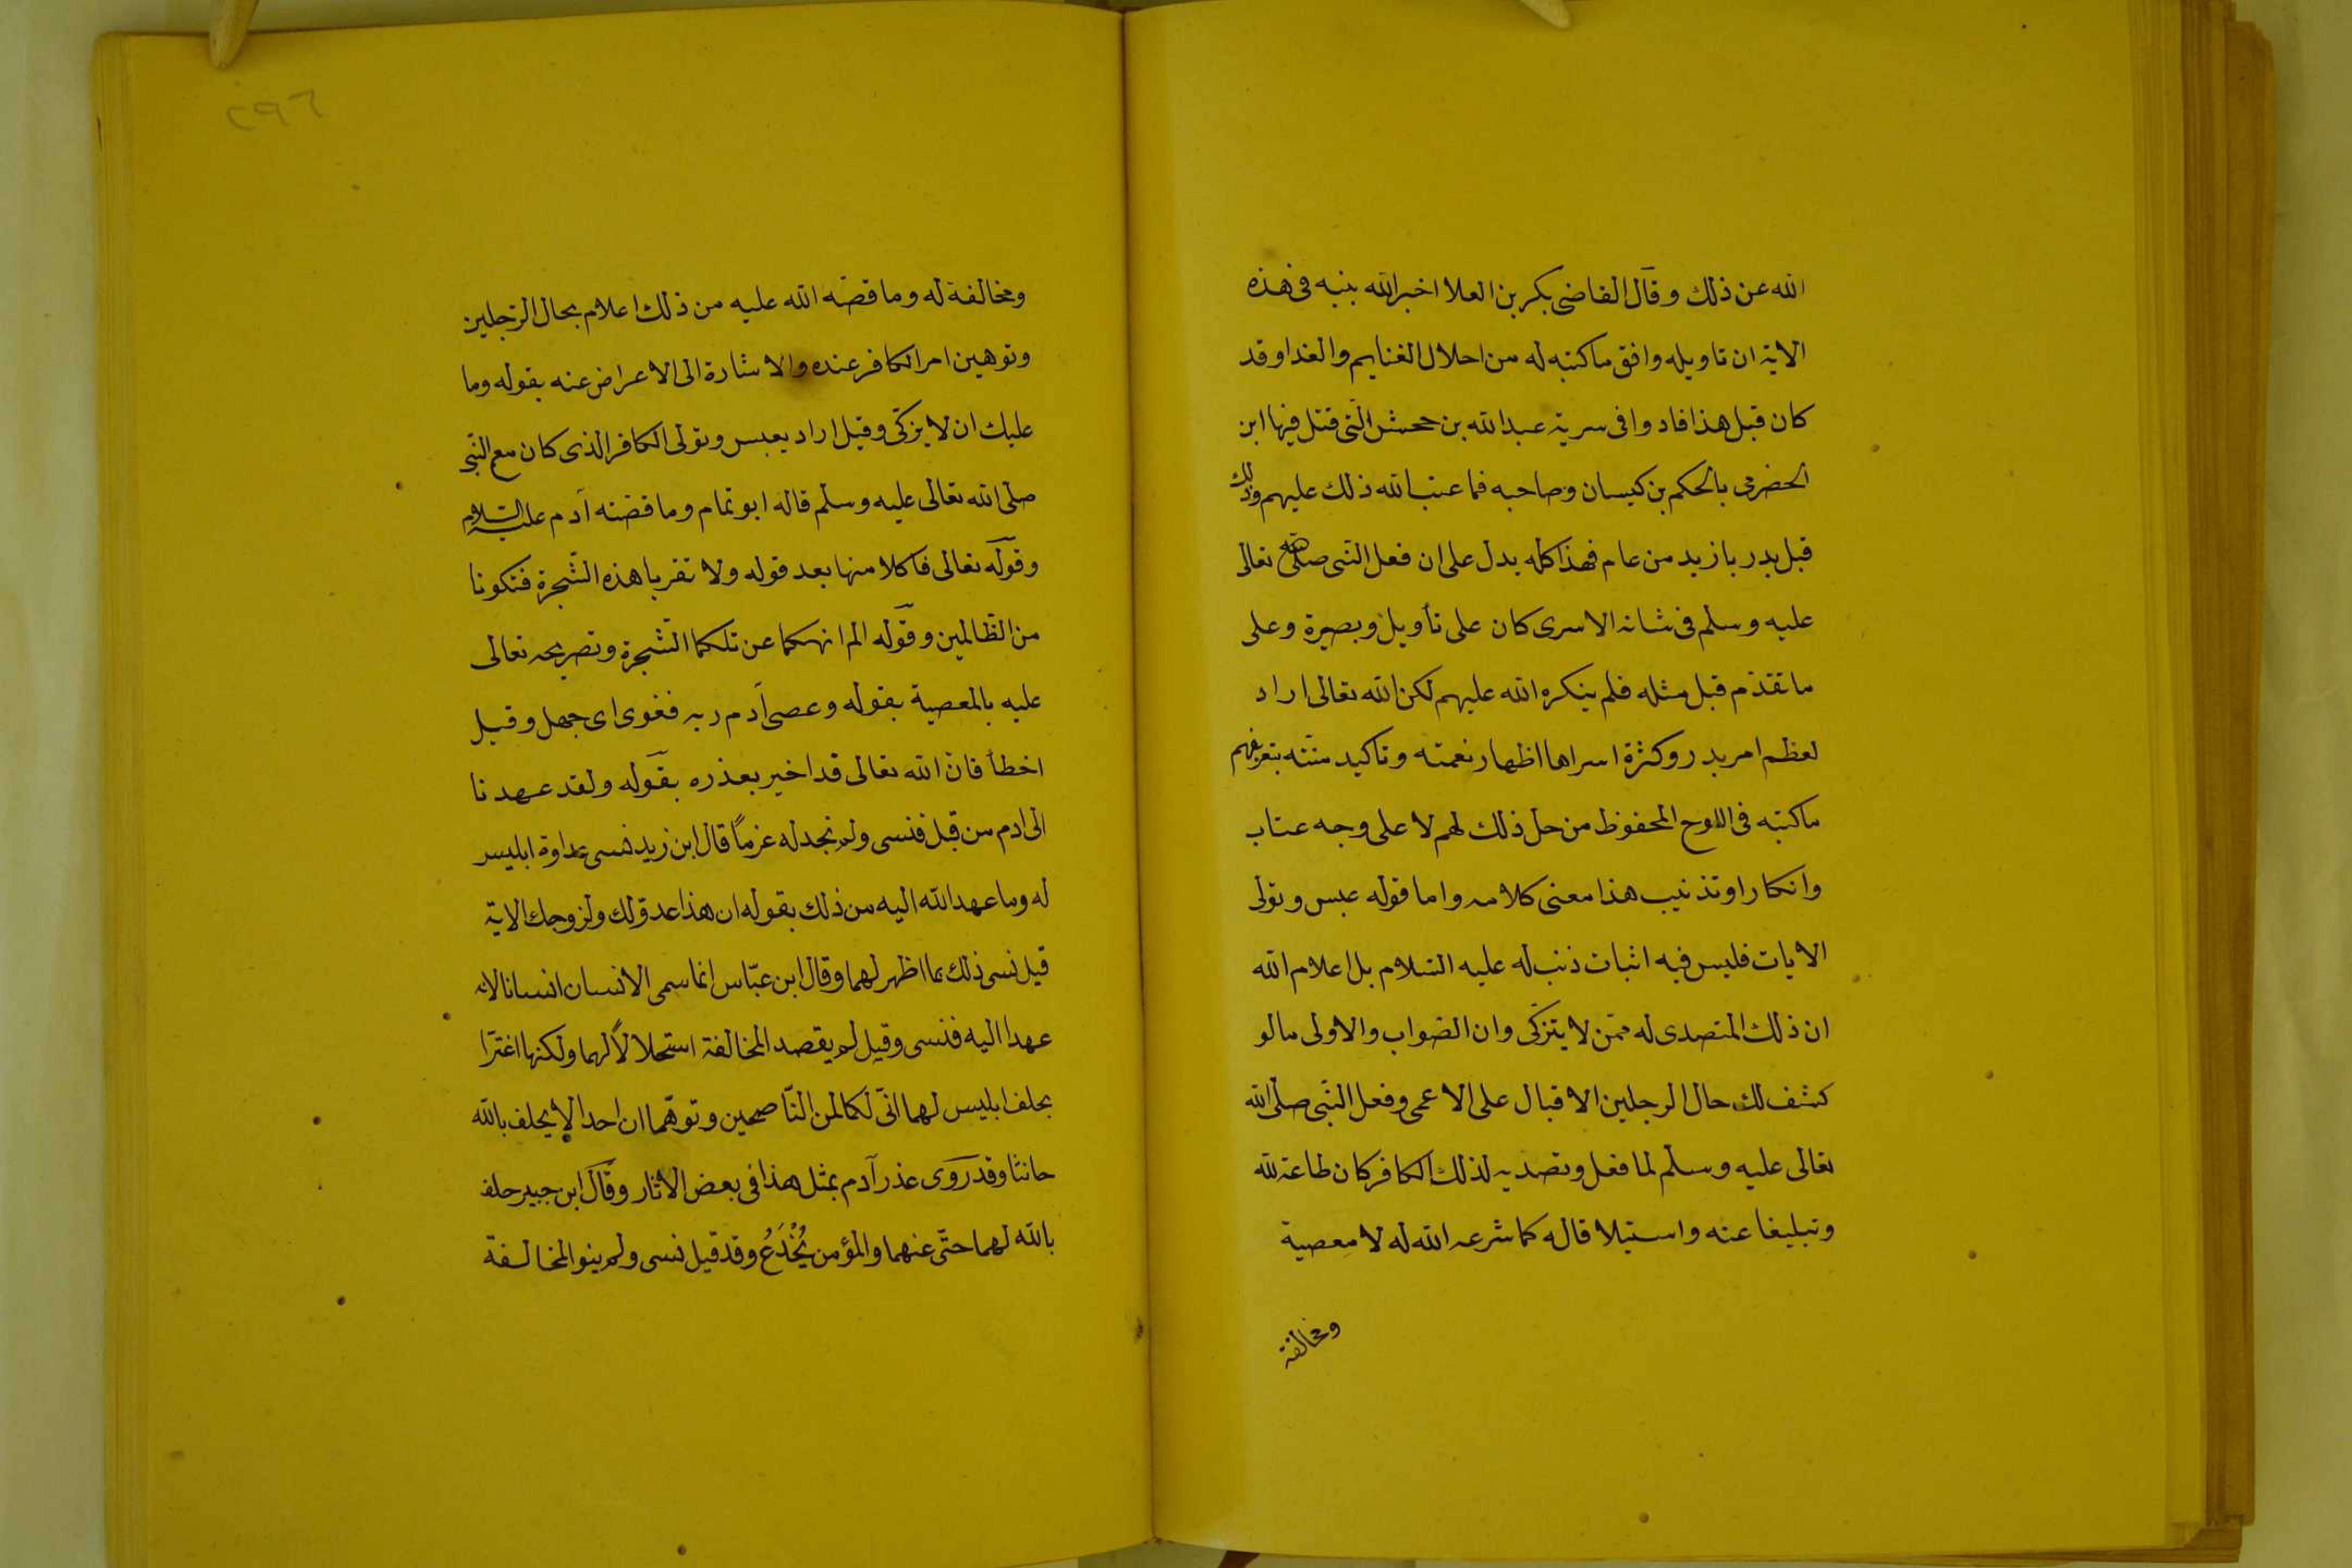 الله عن ذلك وقال القاضى بكر بن العلا اخبر الله بنبه فى هذه
الاية ان تاويله وافق ماكتبه له من احلال الغنايم والفداوقد
كان قبل هذا فادوا فى سرية عبدالله بن جحش الّتى قتل فيها ابن
الحضرمى بالحكم بن كيسان وصاحبه فما عتب الله ذلك عليهم وذلك
قبل بدر بازيد من عام فهذا كله يدل على ان فعل النّبى صلى الله تعالى
عليه وسلم فى شانه الاسرى كان على تأويل وبصيرة وعلى
ما تقدّم قبل مثله فلم ينكره الله عليهم لكن الله تعالى اراد
لعظم امر بدر وكثرة اسراها اظهار نعمته وتاكيد منّته بتعريفهم
ماكتبه فى اللوح المحفوظ من حل ذلك لهم لا على وجه عتاب
وانكار اوتذنيب هذا معنى كلامه واما قوله عبس وتولى
الايات فليس فيه اثبات ذنب له عليه السّلام بل اعلام الله
ان ذلك المتصدى له ممّن لا يتزكّى وان الصّواب والاولى مالو
كشف لك حال الرجلين الاقبال على الاعمى وفعل النّبى صلّى الله
تعالى عليه وسلّم لما فعل وتصديه لذلك الكافر كان طاعة لله
وتبليغا عنه واستيلا قاله كما شرعه الله له لا معصية
ومخالفة
٢٩٦
ومخالفة له وما قصّه الله عليه من ذلك اعلام بحال الرّجلين
وتوهين امر الكافر عنده والاشارة الى الاعراض عنه بقوله وما
عليك ان لا يزكّى وقيل اراد بعبس وتولى الكافر الذى كان مع النّبى
صلى الله تعالى عليه وسلّم قاله ابو تمام وما قصّته آدم عليه السّلام
وقوله تعالى فاكلا منها بعد قوله ولا تقربا هذه الشّجرة فتكونا
من الظّالمين وقوله الم انهكما عن تلكما الشّجرة وتصريحه تعالى
عليه بالمعصية بقوله وعصى آدم ربه فغوى اى جهل وقيل
اخطأ فانّ الله تعالى قد اخبر بعذره بقوله ولقد عهدنا
الى ادم من قبل فنسى ولم نجد له عزمًا قال ابن زيد نسى عداوة ابليس
له وما عهد الله اليه من ذلك بقوله ان هذا عدوّ لك ولزوجك الاية
قيل نسى ذلك بما اظهر لهما وقال ابن عبّاس انما سمى الانسان انسانا لانه
عهد اليه فنسى وقيل لم يقصد المخالفة استحلالاً لهما ولكنها اغترّا
بحلف ابليس لهما انّى لكما لمن النّاصحين وتوهّما ان احدا لا يحلف بالله
حانثا وقد روى عذر آدم بمثل هذا فى بعض الاثار وقال ابن جبير حلف
بالله لهما حتّى عنهما والمؤمن يُخْدَعُ وقد قيل نسى ولم ينو المخالفة